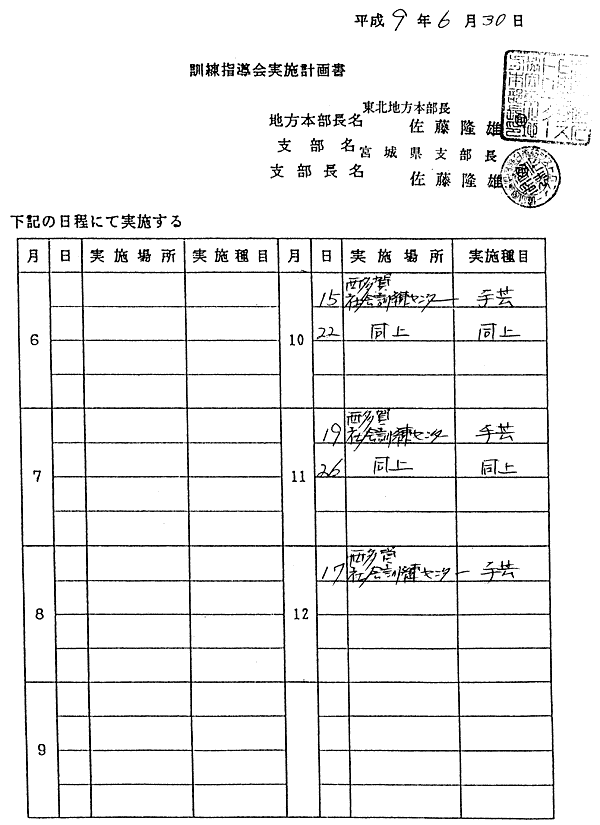 平成 9 年 6 月 30 日
訓練指導会実施計画書
地方本部長名 東北地方本部長
佐藤隆雄
支部名 宮城県支部長
支部長名 佐藤隆雄
下記の日程にて実施する
月 日 実施場所 実施種目 月 日 実施場所 実施種目
6 10 15 西多賀社会訓練センター 手芸
22 同上 同上
7 11 19 西多賀社会訓練センター 手芸
26 同上 同上
8 12 17 西多賀社会訓練センター 手芸
9